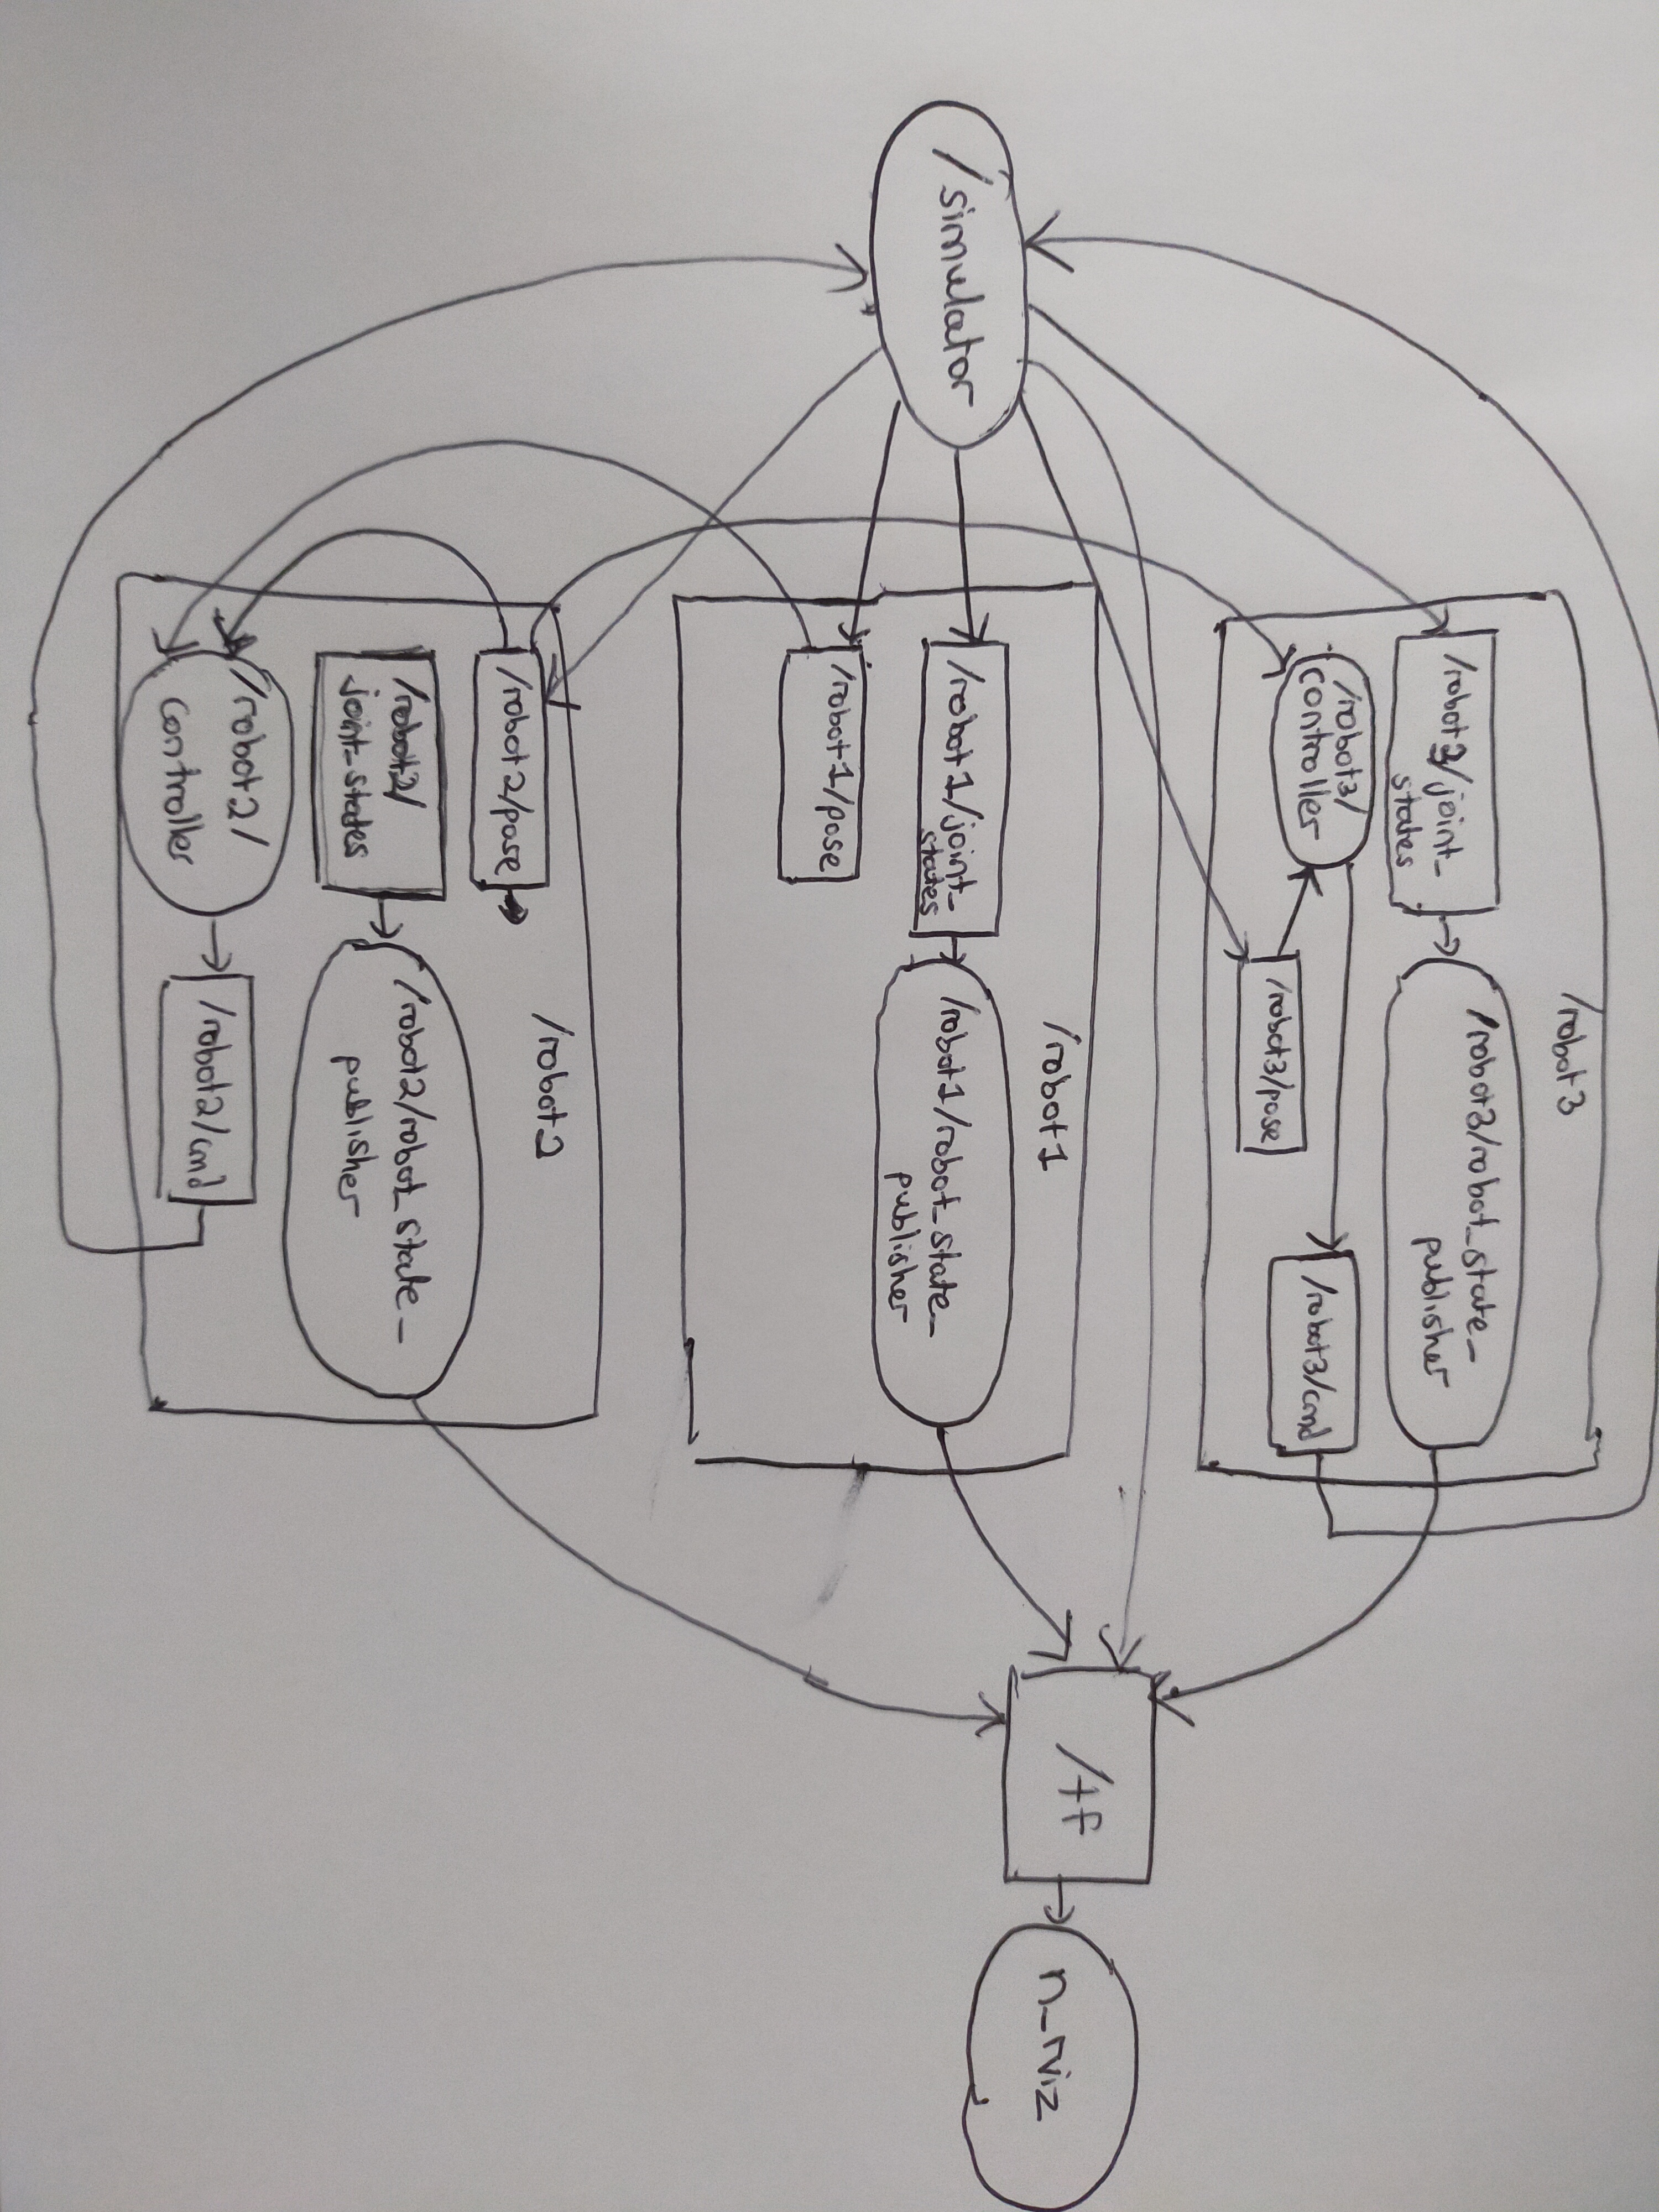 /robot3
/robot3/joint_
states
/robot3/robot_state_
publisher
/robot3/
controller
/robot3/cmd
/robot3/pose
/tf
n_rviz
/simulator
/robot1
/robot1/joint_
states
/robot1/robot_state_
publisher
/robot1/pose
/robot2
/robot2/pose
/robot2/
joint_states
/robot2/robot_state_
publisher
/robot2/
controller
/robot2/cmd